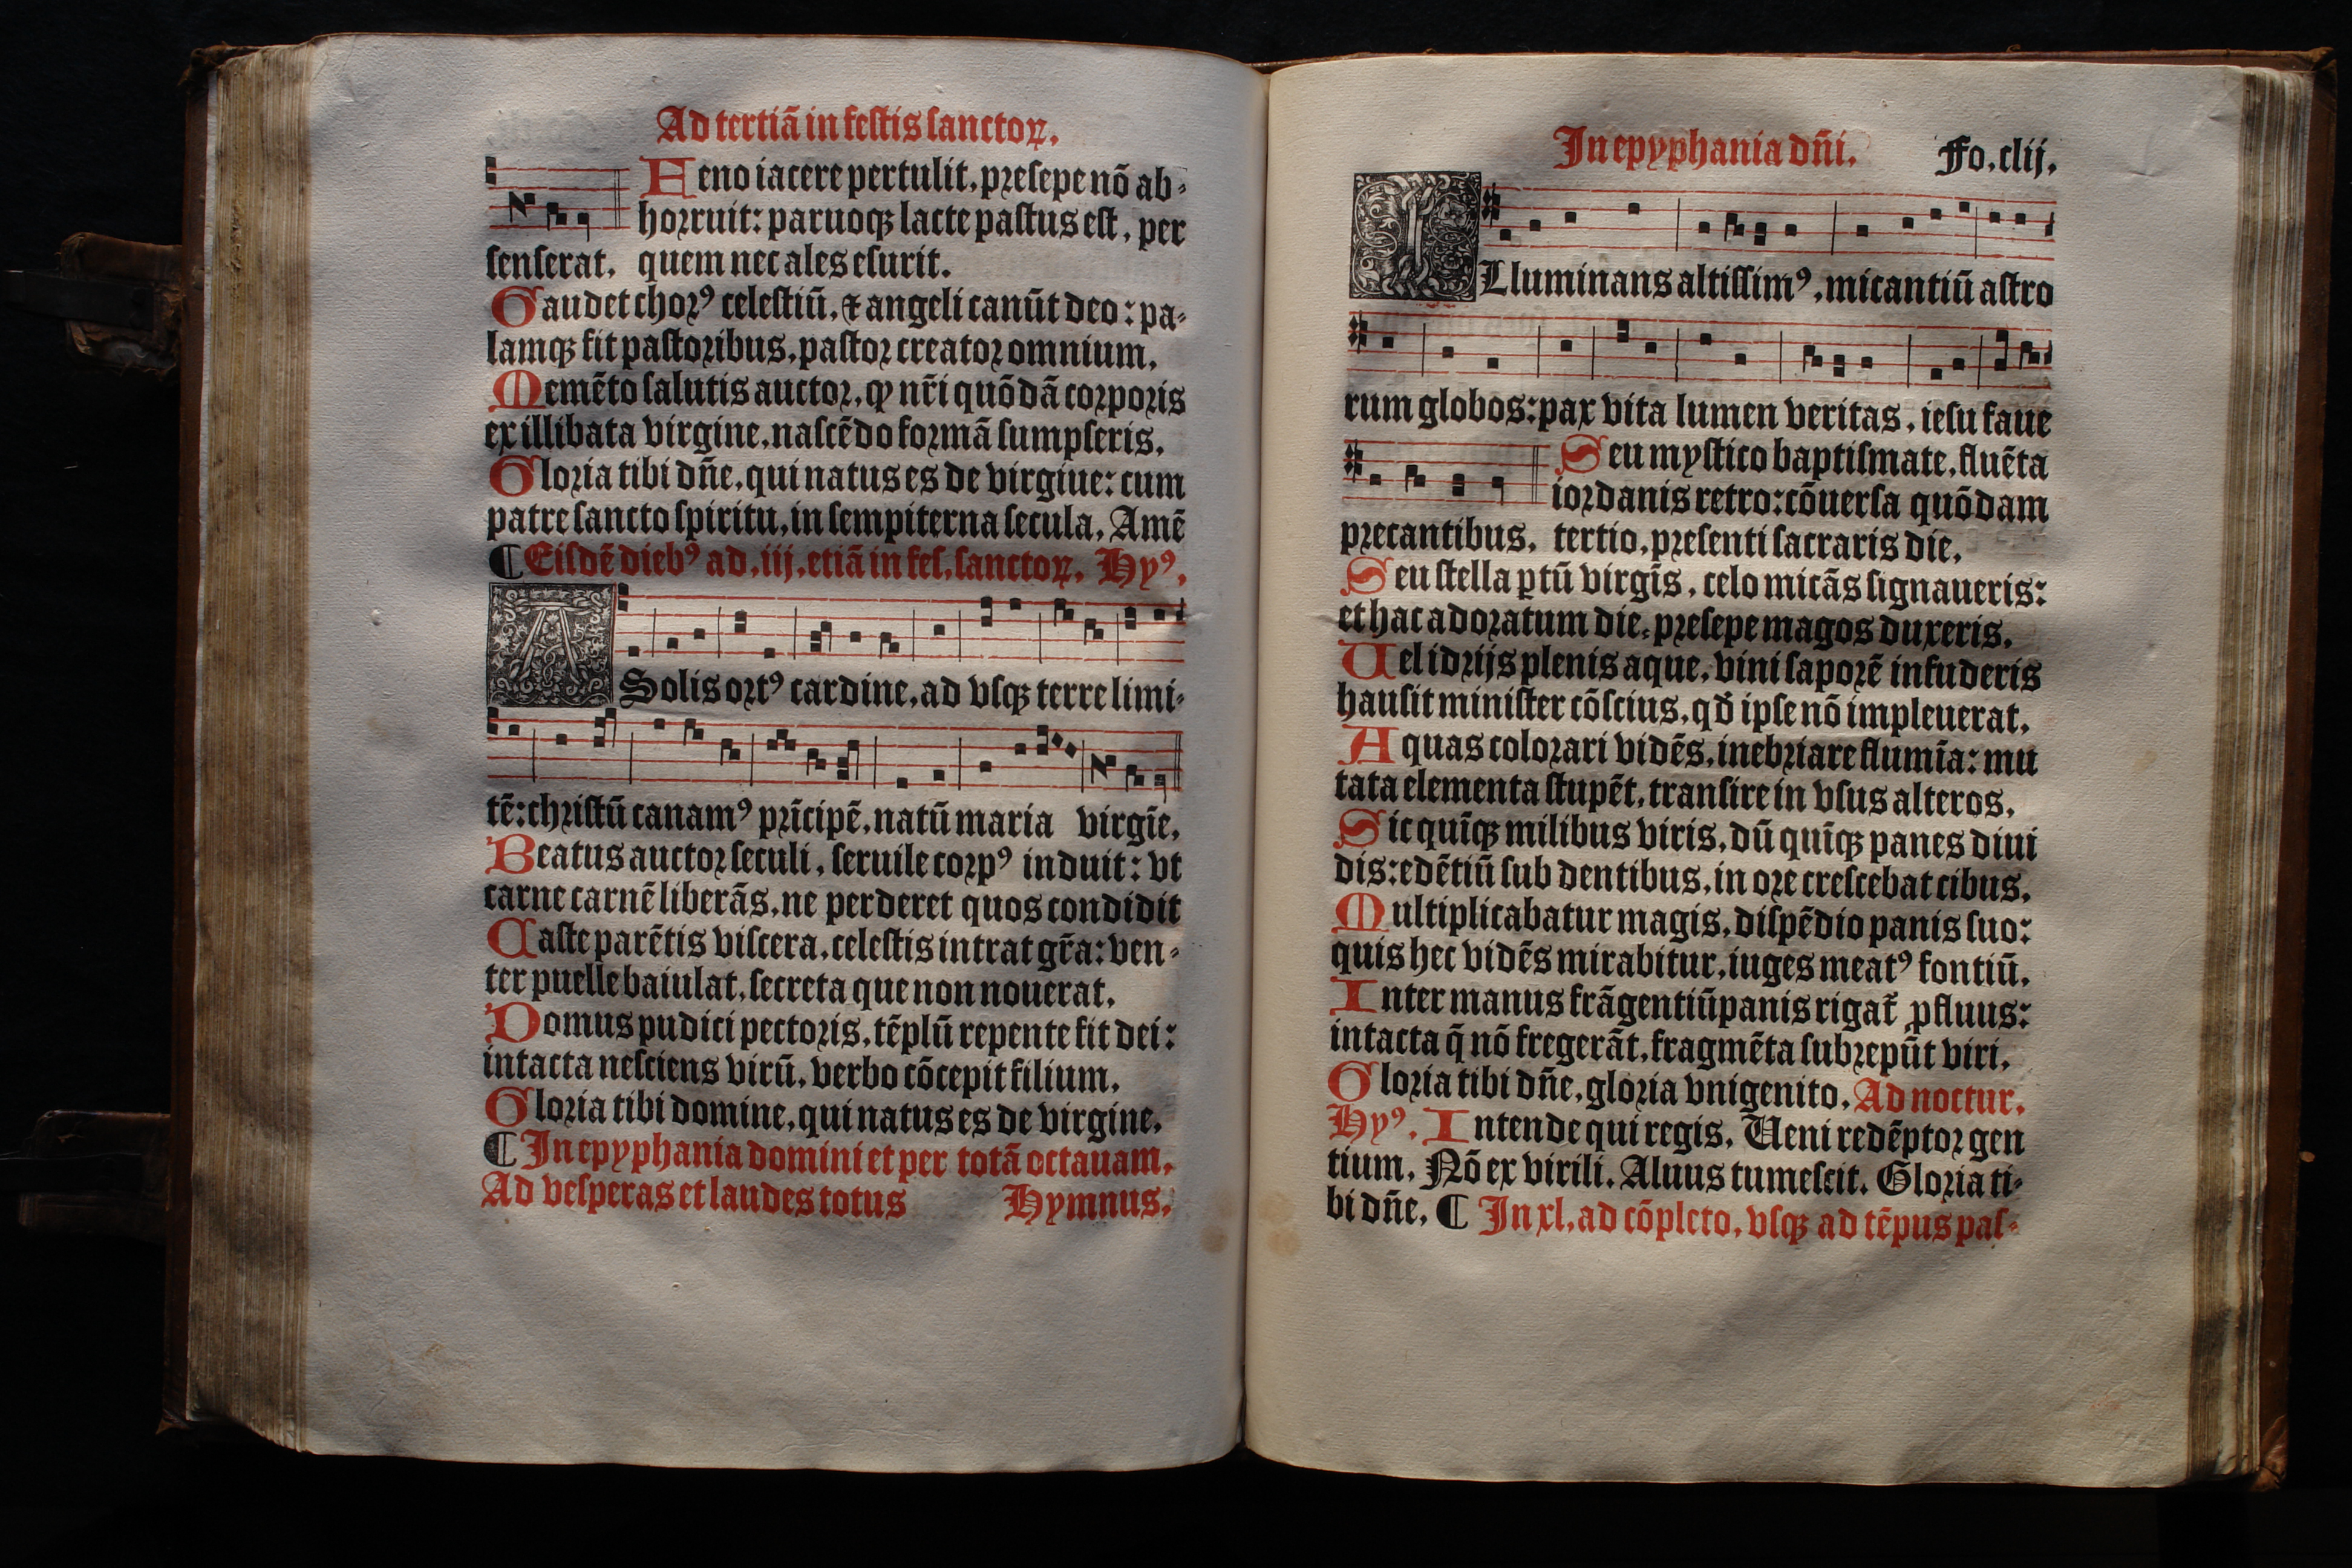 Ad tertiā in festis sanctoꝝ.
Feno iacere pertulit. presepe nō ab-
horruit: paruoqꝫ lacte pastus est. per
senserat. quem nec ales esurit.
Gaudet chorꝰ celestiū. ⁊ angeli canūt deo: pa-
lamqꝫ fit pastoribus. pastor creator omnium.
Memēto salutis auctor. ꝙ nr̄i quōdā corporis
ex illibata virgine. nascēdo formā sumpseris.
Gloria tibi dn̄e. qui natus es de virgiue: cum
patre sancto spiritu. in sempiterna secula. Amē
¶ Eisdē diebꝰ ad .iij. etiā in fes. sanctoꝝ. Hyꝰ.
A Solis ortꝰ cardine. ad vsqꝫ terre limi-
tē: christū canamꝰ prīcipē. natū maria virgīe.
Beatus auctor seculi. seruile corpꝰ induit: vt
carne carnē liberās. ne perderet quos condidit
Caste parētis viscera. celestis intrat gr̄a: ven-
ter puelle baiulat. secreta que non nouerat.
Domus pudici pectoris. tēplū repente fit dei:
intacta nesciens virū. verbo cōcepit filium.
Gloria tibi domine. qui natus es de virgine.
¶ In epyphania domini et per totā octauam.
Ad vesperas et laudes totus Hymnus.
In epyphania dn̄i. Fo. clij.
ILluminans altissimꝰ. micantiū astro
rum globos: pax vita lumen veritas. iesu faue
Seu mystico baptismate. fluēta
iordanis retro: cōuersa quōdam
precantibus. tertio. presenti sacraris die.
Seu stella ꝑtū virgīs. celo micās signaueris:
et hac adoratum die. presepe magos duxeris.
Uel idrijs plenis aque. vini saporē infuderis
hausit minister cōscius. qđ ipse nō impleuerat.
Aquas colorari vidēs. inebriare flumīa: mu
tata elementa stupēt. transire in vsus alteros.
Sic quīqꝫ milibus viris. dū quīqꝫ panes diui
dis: edētiū sub dentibus. in ore crescebat cibus.
Multiplicabatur magis. dispēdio panis suo:
quis hec vidēs mirabitur. iuges meatꝰ fontiū.
Inter manus frāgentiū panis rigat̄ ꝓfluus:
intacta q̄ nō fregerāt. fragmēta subrepūt viri.
Gloria tibi dn̄e. gloria vnigenito. Ad noctur.
Hyꝰ. Intende qui regis. Ueni redēptor gen
tium. Nō ex virili. Aluus tumescit. Gloria ti-
bi dn̄e. ¶ In xl. ad cōpleto. vsqꝫ ad tēpus pas-